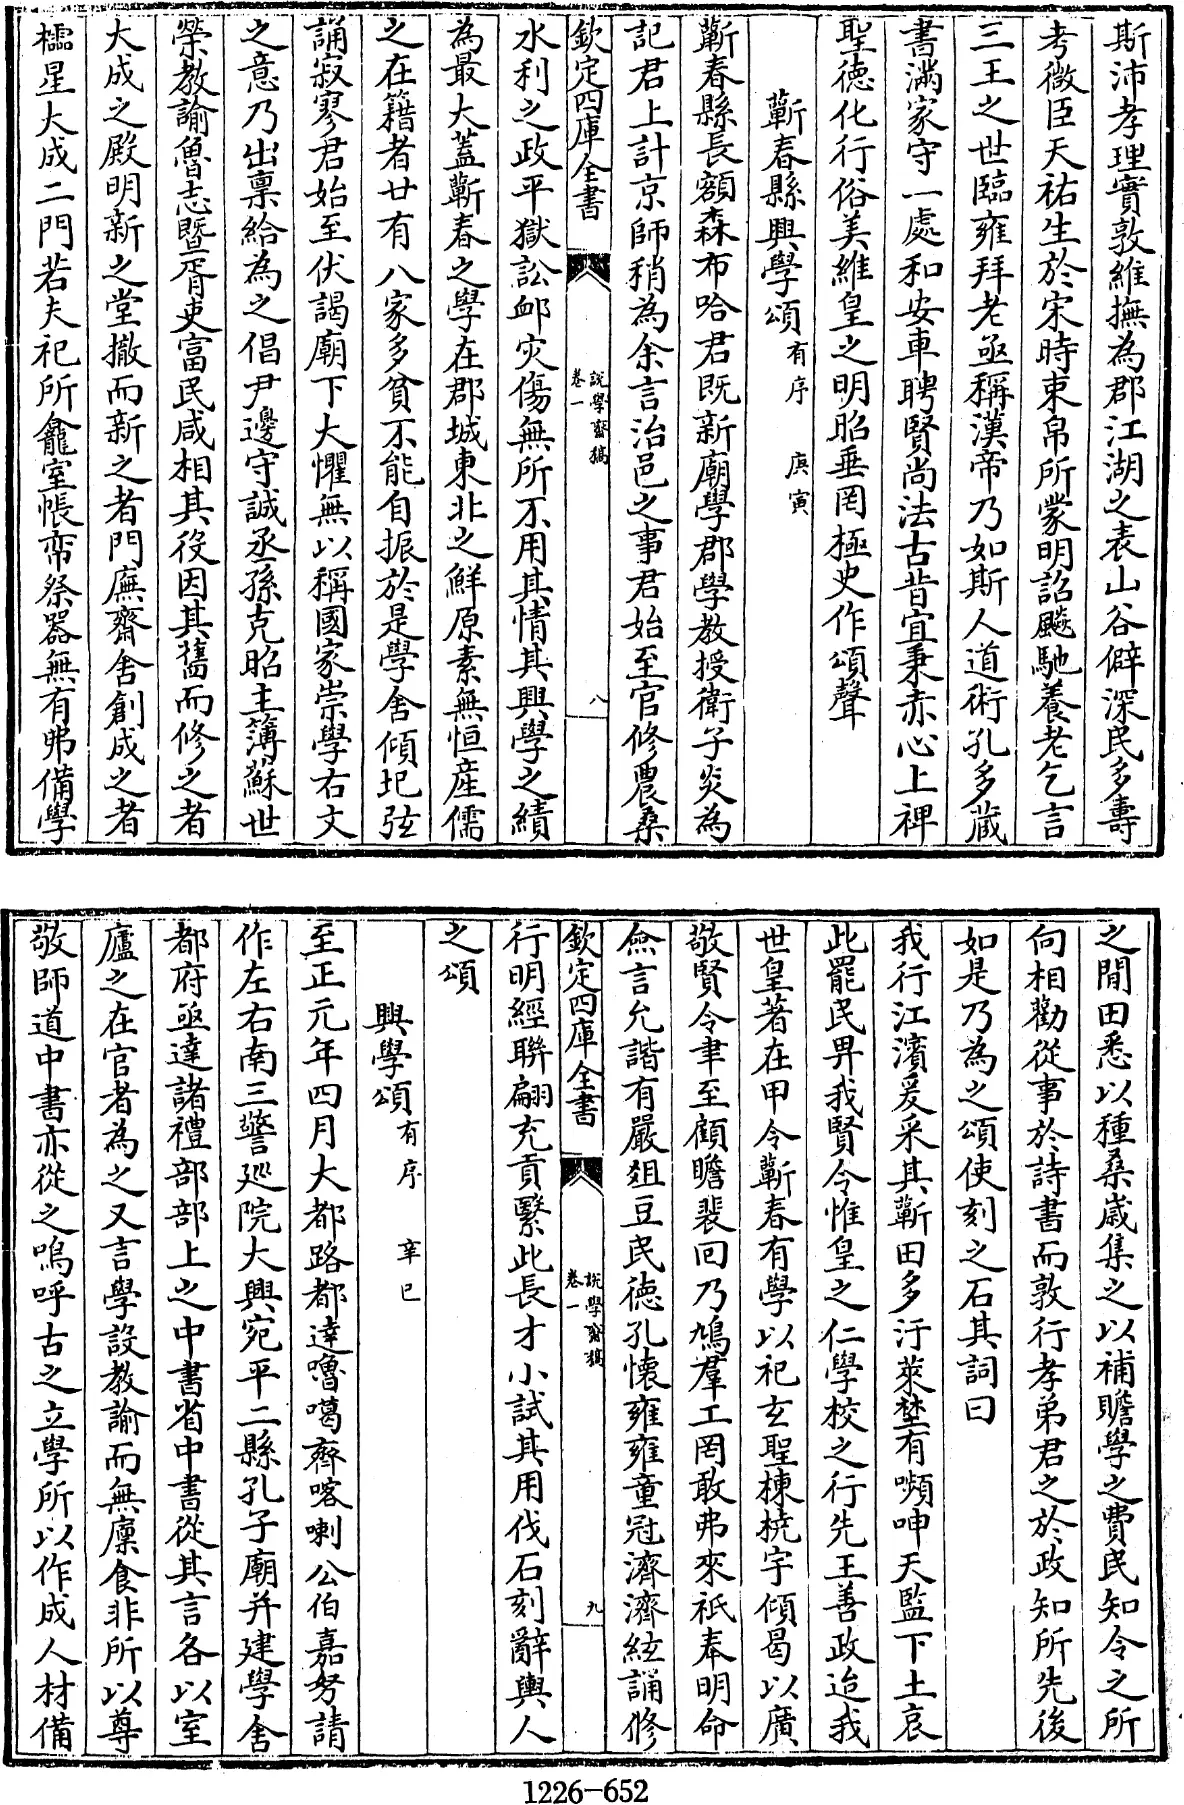 斯沛孝理實敦維撫為郡江湖之表山谷僻深民多壽
考微臣天祐生於宋時束帛所蒙明詔颷馳養老乞言
三王之世臨雍拜老亟稱漢帝乃如斯人道術孔多藏
書滿家守一處和安車聘賢尚法古昔宜秉赤心上裨
聖德化行俗美維皇之明昭垂罔極史作頌聲
蘄春縣興學頌有序 庚寅
蘄春縣長額森布哈君既新廟學郡學教授衛子炎為
記君上計京師稍為余言治邑之事君始至官修農桑
欽定四庫全書
說學齋稿
卷一
八
水利之政平獄訟卹灾傷無所不用其情其興學之績
為最大蓋蘄春之學在郡城東北之鮮原素無恒産儒
之在籍者廿有八家多貧不能自振於是學舍傾圯弦
誦寂寥君始至伏謁廟下大懼無以稱國家崇學右文
之意乃出稟給為之倡尹邊守誠丞孫克昭主簿蘇世
榮教諭魯志暨胥吏富民咸相其役因其舊而修之者
大成之殿明新之堂撤而新之者門廡齋舍創成之者
櫺星大成二門若夫祀所龕室帳帟祭器無有弗備學
之閒田悉以種桑歳集之以補贍學之費民知令之所
向相勸從事於詩書而敦行孝弟君之於政知所先後
如是乃為之頌使刻之石其詞曰
我行江濱爰采其蘄田多汙萊埜有嚬呻天監下土哀
此罷民畀我賢令惟皇之仁學校之行先王善政迨我
世皇著在甲令蘄春有學以祀玄聖棟橈宇傾曷以廣
敬賢令聿至顧瞻裴回乃鳩羣工罔敢弗來祇奉明命
僉言允諧有嚴俎豆民德孔懷雍雍童冠濟濟絃誦修
欽定四庫全書
說學齋稿
卷一
九
行明經聯翩充貢繄此長才小試其用伐石刻辭輿人
之頌
興學頌有序 辛巳
至正元年四月大都路都達嚕噶齊喀喇公伯嘉努請
作左右南三警廵院大興宛平二縣孔子廟并建學舍
都府亟達諸禮部部上之中書省中書從其言各以室
廬之在官者為之又言學設教諭而無廩食非所以尊
敬師道中書亦從之嗚呼古之立學所以作成人材備
1226-652